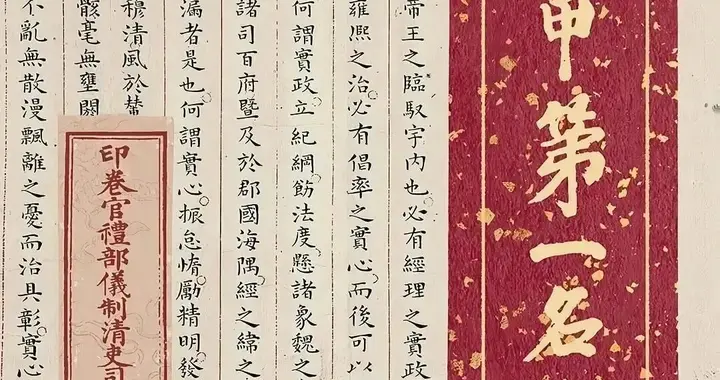 甲第一名
帝王之臨馭宇内也必有經理之實政
雍熙之治必有倡率之實心而後可以
何謂實政立紀綱飭法度懸諸象魏之
諸司百府暨及於郡國海隅經之緯之
漏者是也何謂實心振怠惰勵精明發
穆清風於
骸毫無壅閼
不亂無散漫飄離之憂而治具彰實心
印卷官禮部儀制清吏司